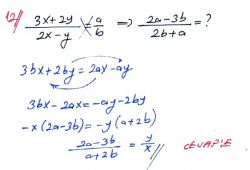 12) (3x+2y)/(2x-y) = a/b ⇒ (2a-3b)/(2b+a) = ?
3bx+2by = 2ax-ay
3bx-2ax = -ay-2by
-x(2a-3b) = -y(a+2b)
(2a-3b)/(a+2b) = y/x //
CEVAP: E